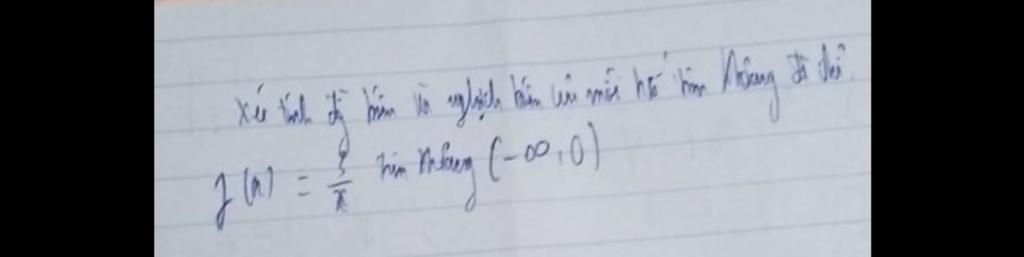 Xét tính đồng biến và nghịch biến của mỗi hàm số trên khoảng đã chỉ.
f(x) = 3/x trên khoảng (-∞, 0)